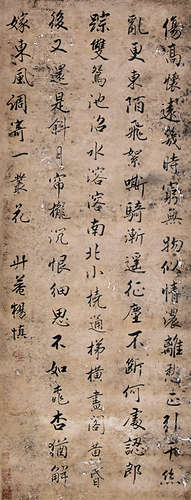 傷高懷遠幾時窮無物似情濃離愁正引千絲
亂更東陌飛絮嘶騎漸遙征塵不斷何處認郎
踪雙鴛池沼水溶溶南北小橈通梯橫畫閣黃昏
後又還是斜月帘櫳沉恨細思不如桃杏猶解
嫁東風 調寄一叢花 升菴楊慎